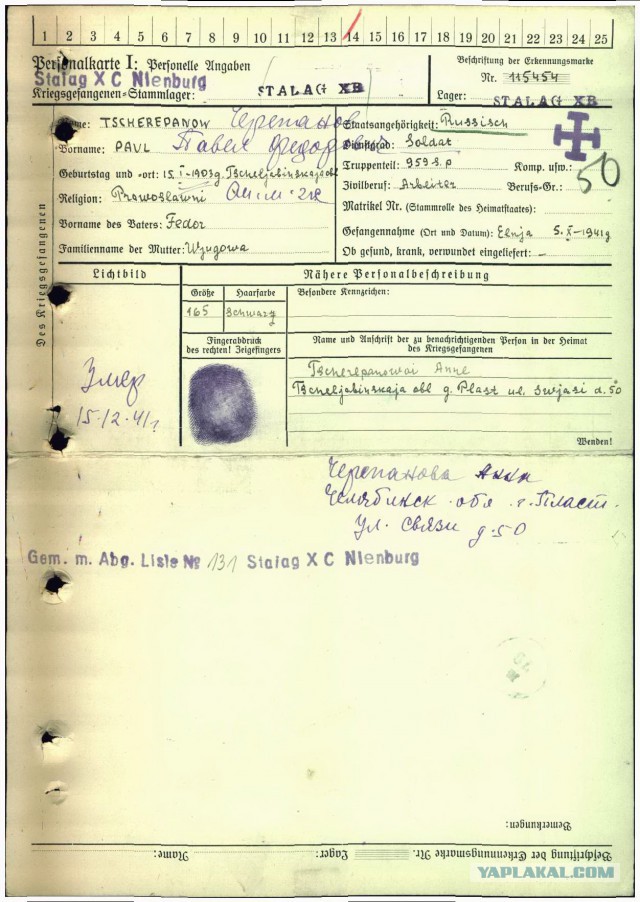 1 2 3 4 5 6 7 8 9 10 11 12 13 14 15 16 17 18 19 20 21 22 23 24 25
Personalkarte I: Personelle Angaben
Stalag X C Nienburg
Kriegsgefangenen-Stammlager: STALAG XB
Beschriftung der Erkennungsmarke
Nr. 115454
Lager: STALAG XB
Des Kriegsgefangenen
Name: TSCHEREPANOW Черепанов
Vorname: PAUL Павел Федорович
Geburtstag und -ort: 15. I-1903g. Tscheljabinskaja obl
Religion: Prawoslawni
Vorname des Vaters: Fedor
Familienname der Mutter:
Staatsangehörigkeit: Russisch
Dienstgrad: Soldat
Truppenteil: 959 s.p Komp. usw.: 50
Zivilberuf: Arbeiter Berufs-Gr.:
Matrikel Nr. (Stammrolle des Heimatstaates):
Gefangennahme (Ort und Datum): Elnja 5.X-1941g
Ob gesund, krank, verwundet eingeliefert: -
Lichtbild
Nähere Personalbeschreibung
Größe Haarfarbe Besondere Kennzeichen:
165 schwarz
Fingerabdruck
des rechten! Zeigefingers
Name und Anschrift der zu benachrichtigenden Person in der Heimat
des Kriegsgefangenen
Tscherepanowoi Anne
Tscheljabinskaja obl g. Plast ul. swjasi d. 50
Wenden!
Умер
15-12-41г
Черепанова Анна
Челябинск. обл. г. Пласт.
Ул. Связи д-50
Gem. m. Abg. Liste № 131 Stalag X C Nienburg
Bemerkungen:
Beschriftung der Erkennungsmarke Nr. Lager: Name:
YAPLAKAL.COM